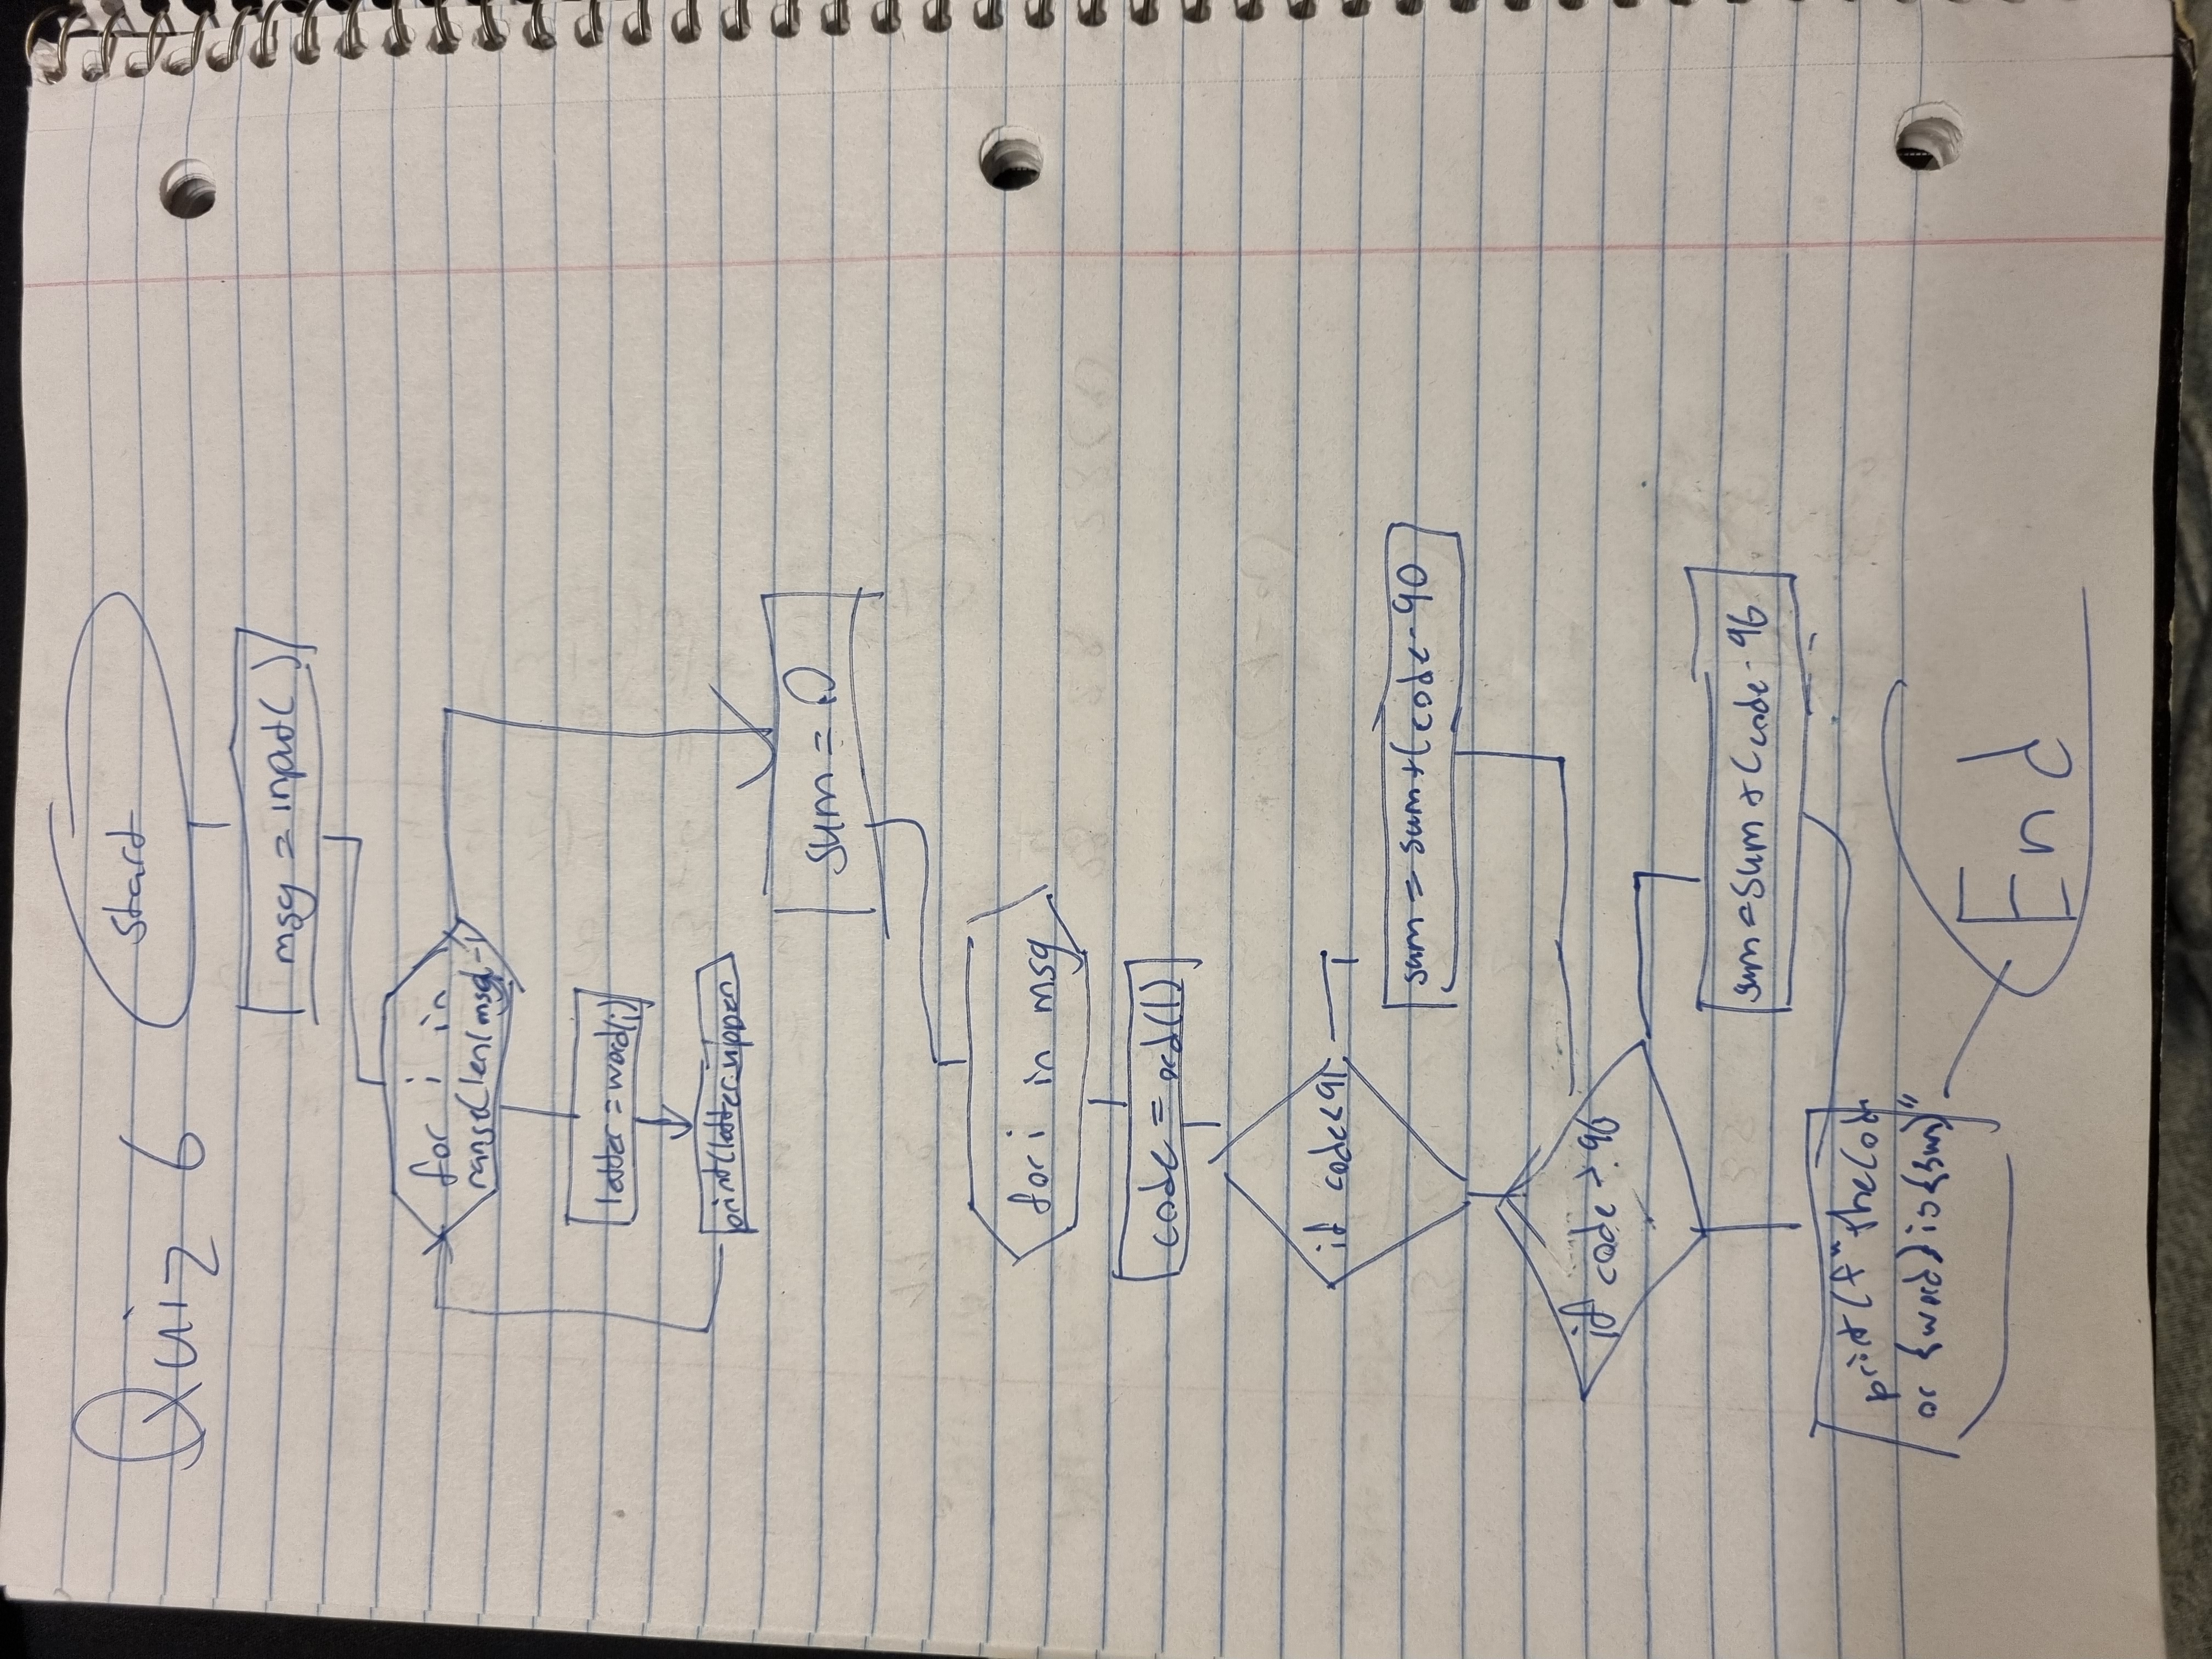 Quiz 6
start
msg = input( )
for i in
range(len(msg-1
letter = word(i)
print(letter.upper
sum = 0
for i in msg
code = ord(1)
if code<91
sum = sum+(code-90
if code > 96
sum=sum+(code-96
print(f"the code
or {word} is {sum}"
End